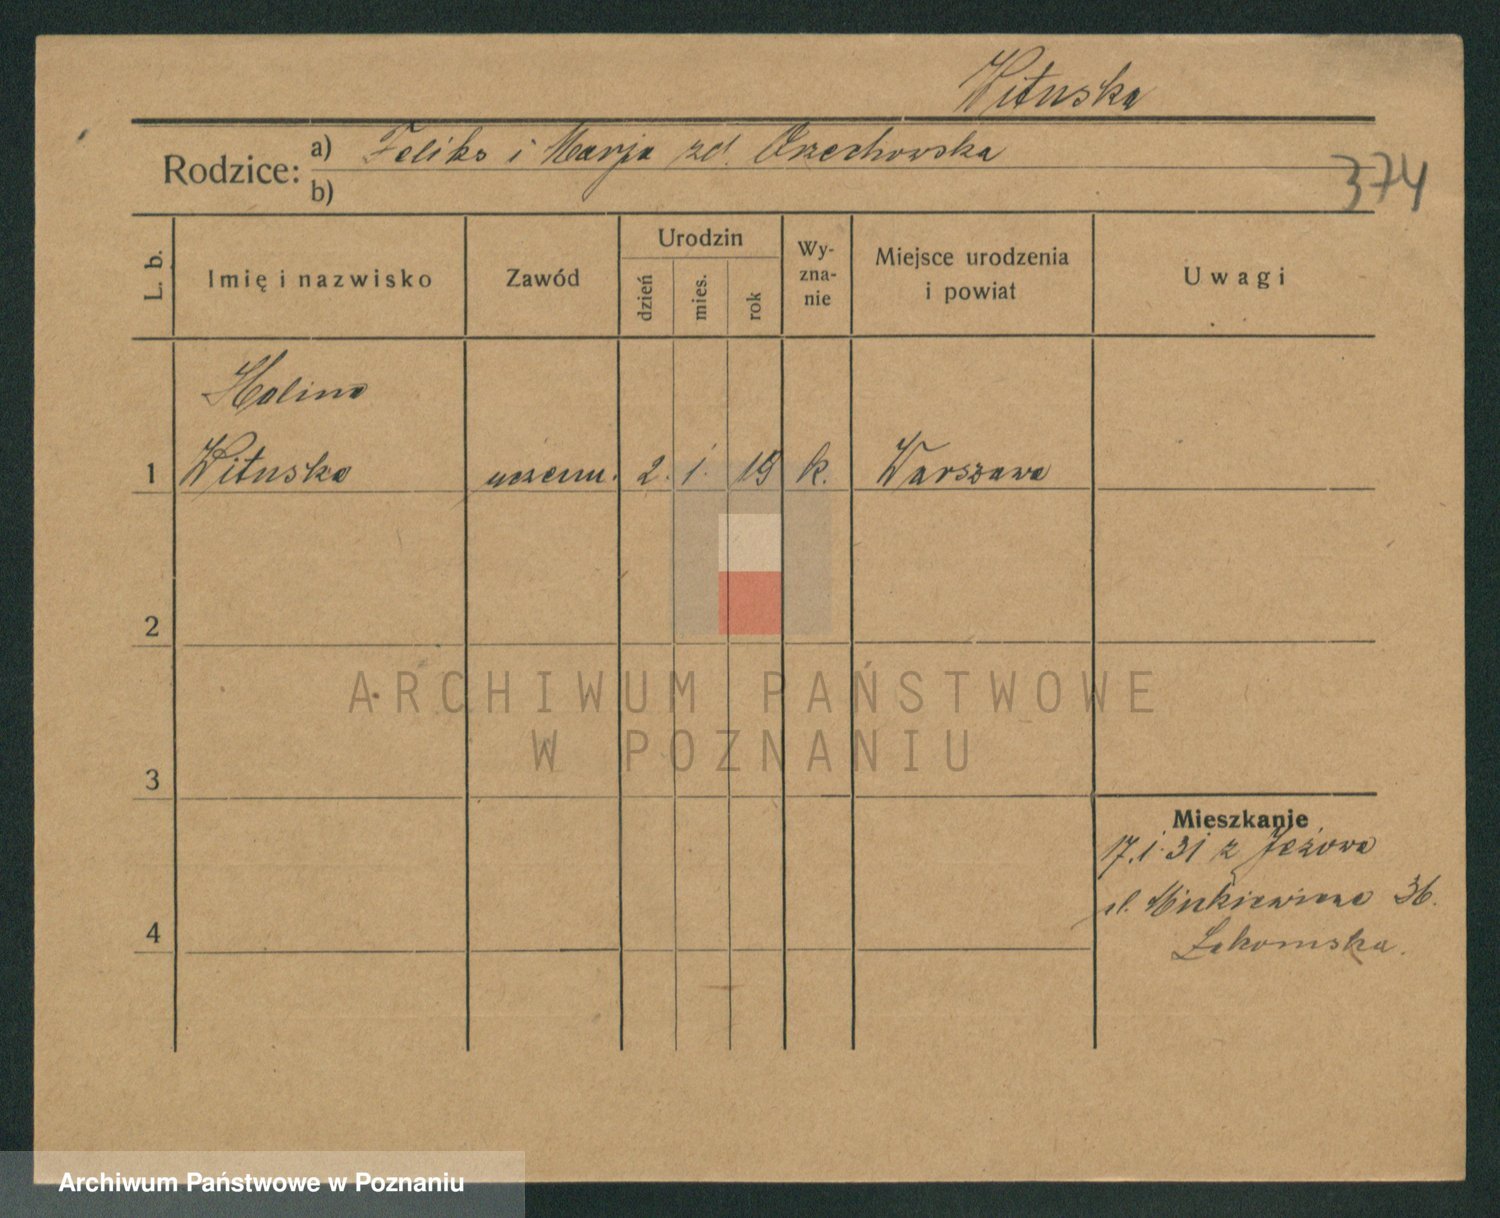 Wituska
Rodzice: a) Feliks i Marja zd. Orzechowska
b)
374
L. b.
Imię i nazwisko
Zawód
Urodzin
dzień
mies.
rok
Wy-
zna-
nie
Miejsce urodzenia
i powiat
Uwagi
Halina
1 Wituska uczenn. 2. 1. 19 k. Warszawa
2
3
4
Mieszkanie
17.1.31 z Jeżowa
ul. Mickiewicza 36.
Łakomska.
ARCHIWUM PAŃSTWOWE
W POZNANIU
Archiwum Państwowe w Poznaniu